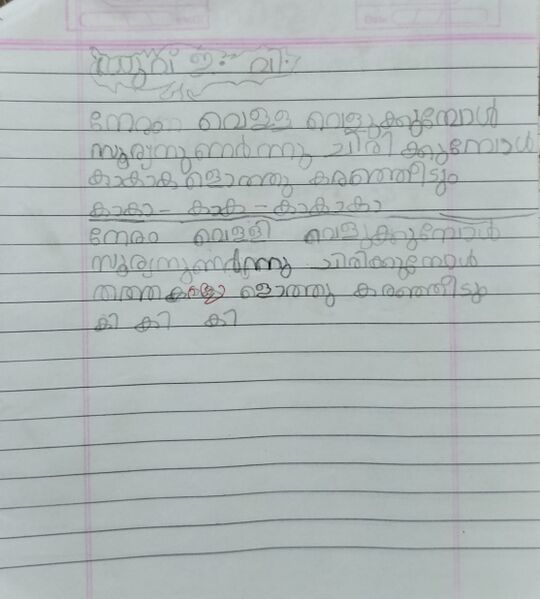 നേരം വെള്ള വെളുക്കുമ്പോൾ
സൂര്യനുണർന്നു ചിരിക്കുമ്പോൾ
കാകാക ളൊത്തു കരഞ്ഞീടും
കാകാ - കാക - കാകാകാ
നേരം വെള്ളി വെളുക്കുമ്പോൾ
സൂര്യനുണർന്നു ചിരിക്കുമ്പോൾ
തത്തക ളൊത്തു കരഞ്ഞീടും
കി കി കി